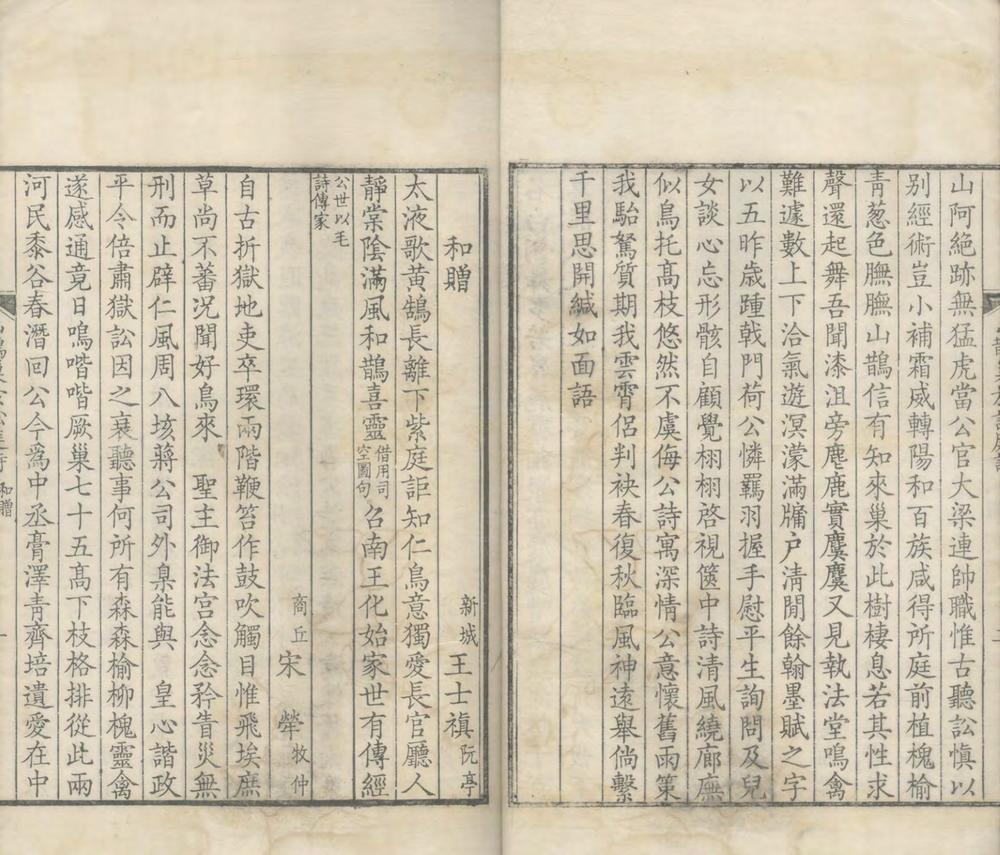 山阿絶跡無猛虎當公官大梁連帥職惟古聽訟慎以
别經術豈小補霜威轉陽和百族咸得所庭前植槐榆
靑葱色膴膴山鵲信有知來巢於此樹棲息若其性求
聲還起舞吾聞漆沮旁麀鹿實麌麌又見執法堂鳴禽
難遽數上下洽氣遊溟濛滿牖户淸閒餘翰墨賦之字
以五昨歳踵戟門荷公憐羈羽握手慰平生詢問及兒
女談心忘形骸自顧覺栩栩啓視篋中詩清風繞廊廡
似鳥托高枝悠然不虞侮公詩寓深情公意懷舊雨策
我駘駑質期我雲霄侶判袂春復秋臨風神遠舉倘繫
千里思開緘如面語
和贈
新城 王士禛 阮亭
太液歌黄鵠長離下紫庭詎知仁鳥意獨愛長官廳人
靜棠陰滿風和鵲喜靈借用司空圖句召南王化始家世有傳經
公世以毛詩傳家
商丘 宋犖 牧仲
自古折獄地吏卒環兩階鞭笞作鼓吹觸目惟飛埃庶
草尚不蕃况聞好鳥來 聖主御法宫念念矜眚災無
刑而止辟仁風周八垓蔣公司外臬能與 皇心諧政
平令倍肅獄訟因之衰聽事何所有森森榆柳槐靈禽
遂感通竟日鳴喈喈厥巢七十五高下枝格排從此兩
河民黍谷春潛回公今爲中丞膏澤靑齊培遺愛在中
和贈
一